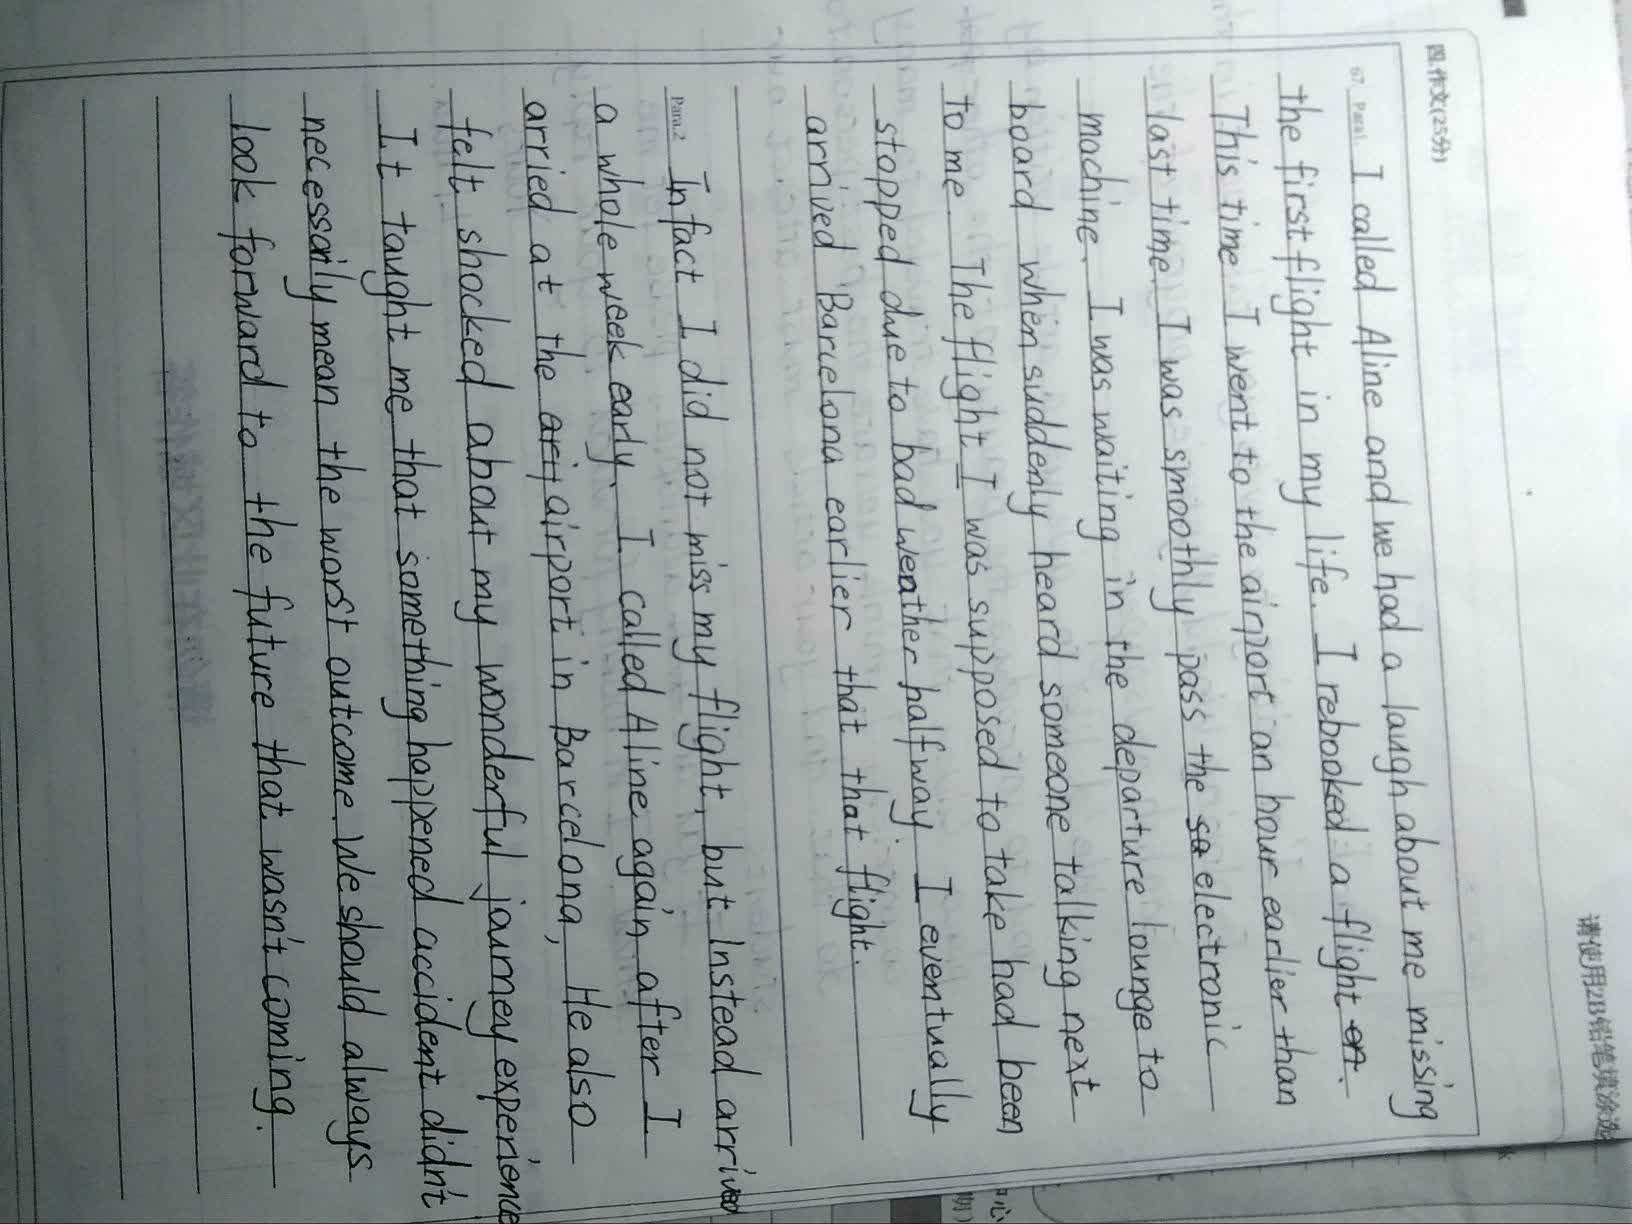 四.作文(25分)
67. Para1. I called Aline and we had a laugh about me missing
the first flight in my life. I rebooked a flight on.
This time I went to the airport an hour earlier than
last time. I was smoothly pass the sa electronic
machine. I was waiting in the departure lounge to
board when suddenly heard someone talking next
to me. The flight I was supposed to take had been
stopped due to bad weather halfway. I eventually
arrived Barcelona earlier that that flight.
Para.2 In fact I did not miss my flight, but instead arrived
a whole week early. I called Aline again after I
arried at the arit airport in Barcelona, He also
felt shocked about my wonderful journey experience
It taught me that something happened accident didn't
necessarily mean the worst outcome. We should always
look forward to the future that wasn't coming.
请使用2B铅笔填涂选